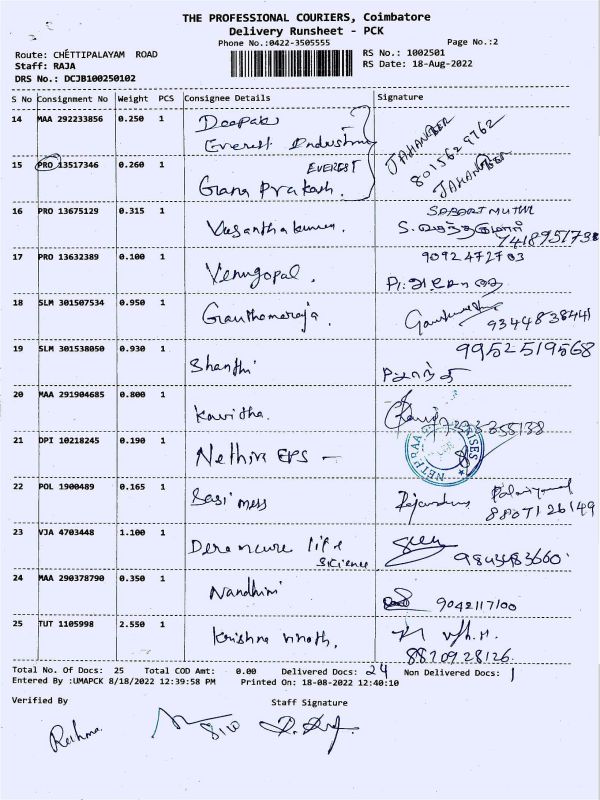 THE PROFESSIONAL COURIERS, Coimbatore
Delivery Runsheet - PCK
Phone No.:0422-3505555
Page No.:2
Route: CHETTIPALAYAM ROAD
RS No.: 1002501
Staff: RAJA
RS Date: 18-Aug-2022
DRS No.: DCJB100250102
S No Consignment No Weight PCS Consignee Details Signature
14 MAA 292233856 0.250 1 Deepak JAHANGEER
Everest 8015629762
15 PRO 13517346 0.260 1 EVEREST JAHANGEER
Gnana Prakash.
16 PRO 13675129 0.315 1 Vasanthakumar.
17 PRO 13632389 0.100 1 Venugopal. 9092472703
18 SLM 301507534 0.950 1 9344838441
19 SLM 301538050 0.930 1 Shanthi 9952519568
சாந்தி
20 MAA 291904685 0.800 1 Kavitha.
21 DPI 10218245 0.190 1 Nethra EPS –
22 POL 1900489 0.165 1 Sasi mess 8807126149
23 VJA 4703448 1.100 1 life science
24 MAA 290378790 0.350 1 Nandhini 9042117100
25 TUT 1105998 2.550 1 Krishna vinoth. 8870928126
Total No. Of Docs: 25 Total COD Amt: 0.00 Delivered Docs: 24 Non Delivered Docs: 1
Entered By :UMAPCK 8/18/2022 12:39:58 PM Printed On: 18-08-2022 12:40:10
Verified By Staff Signature